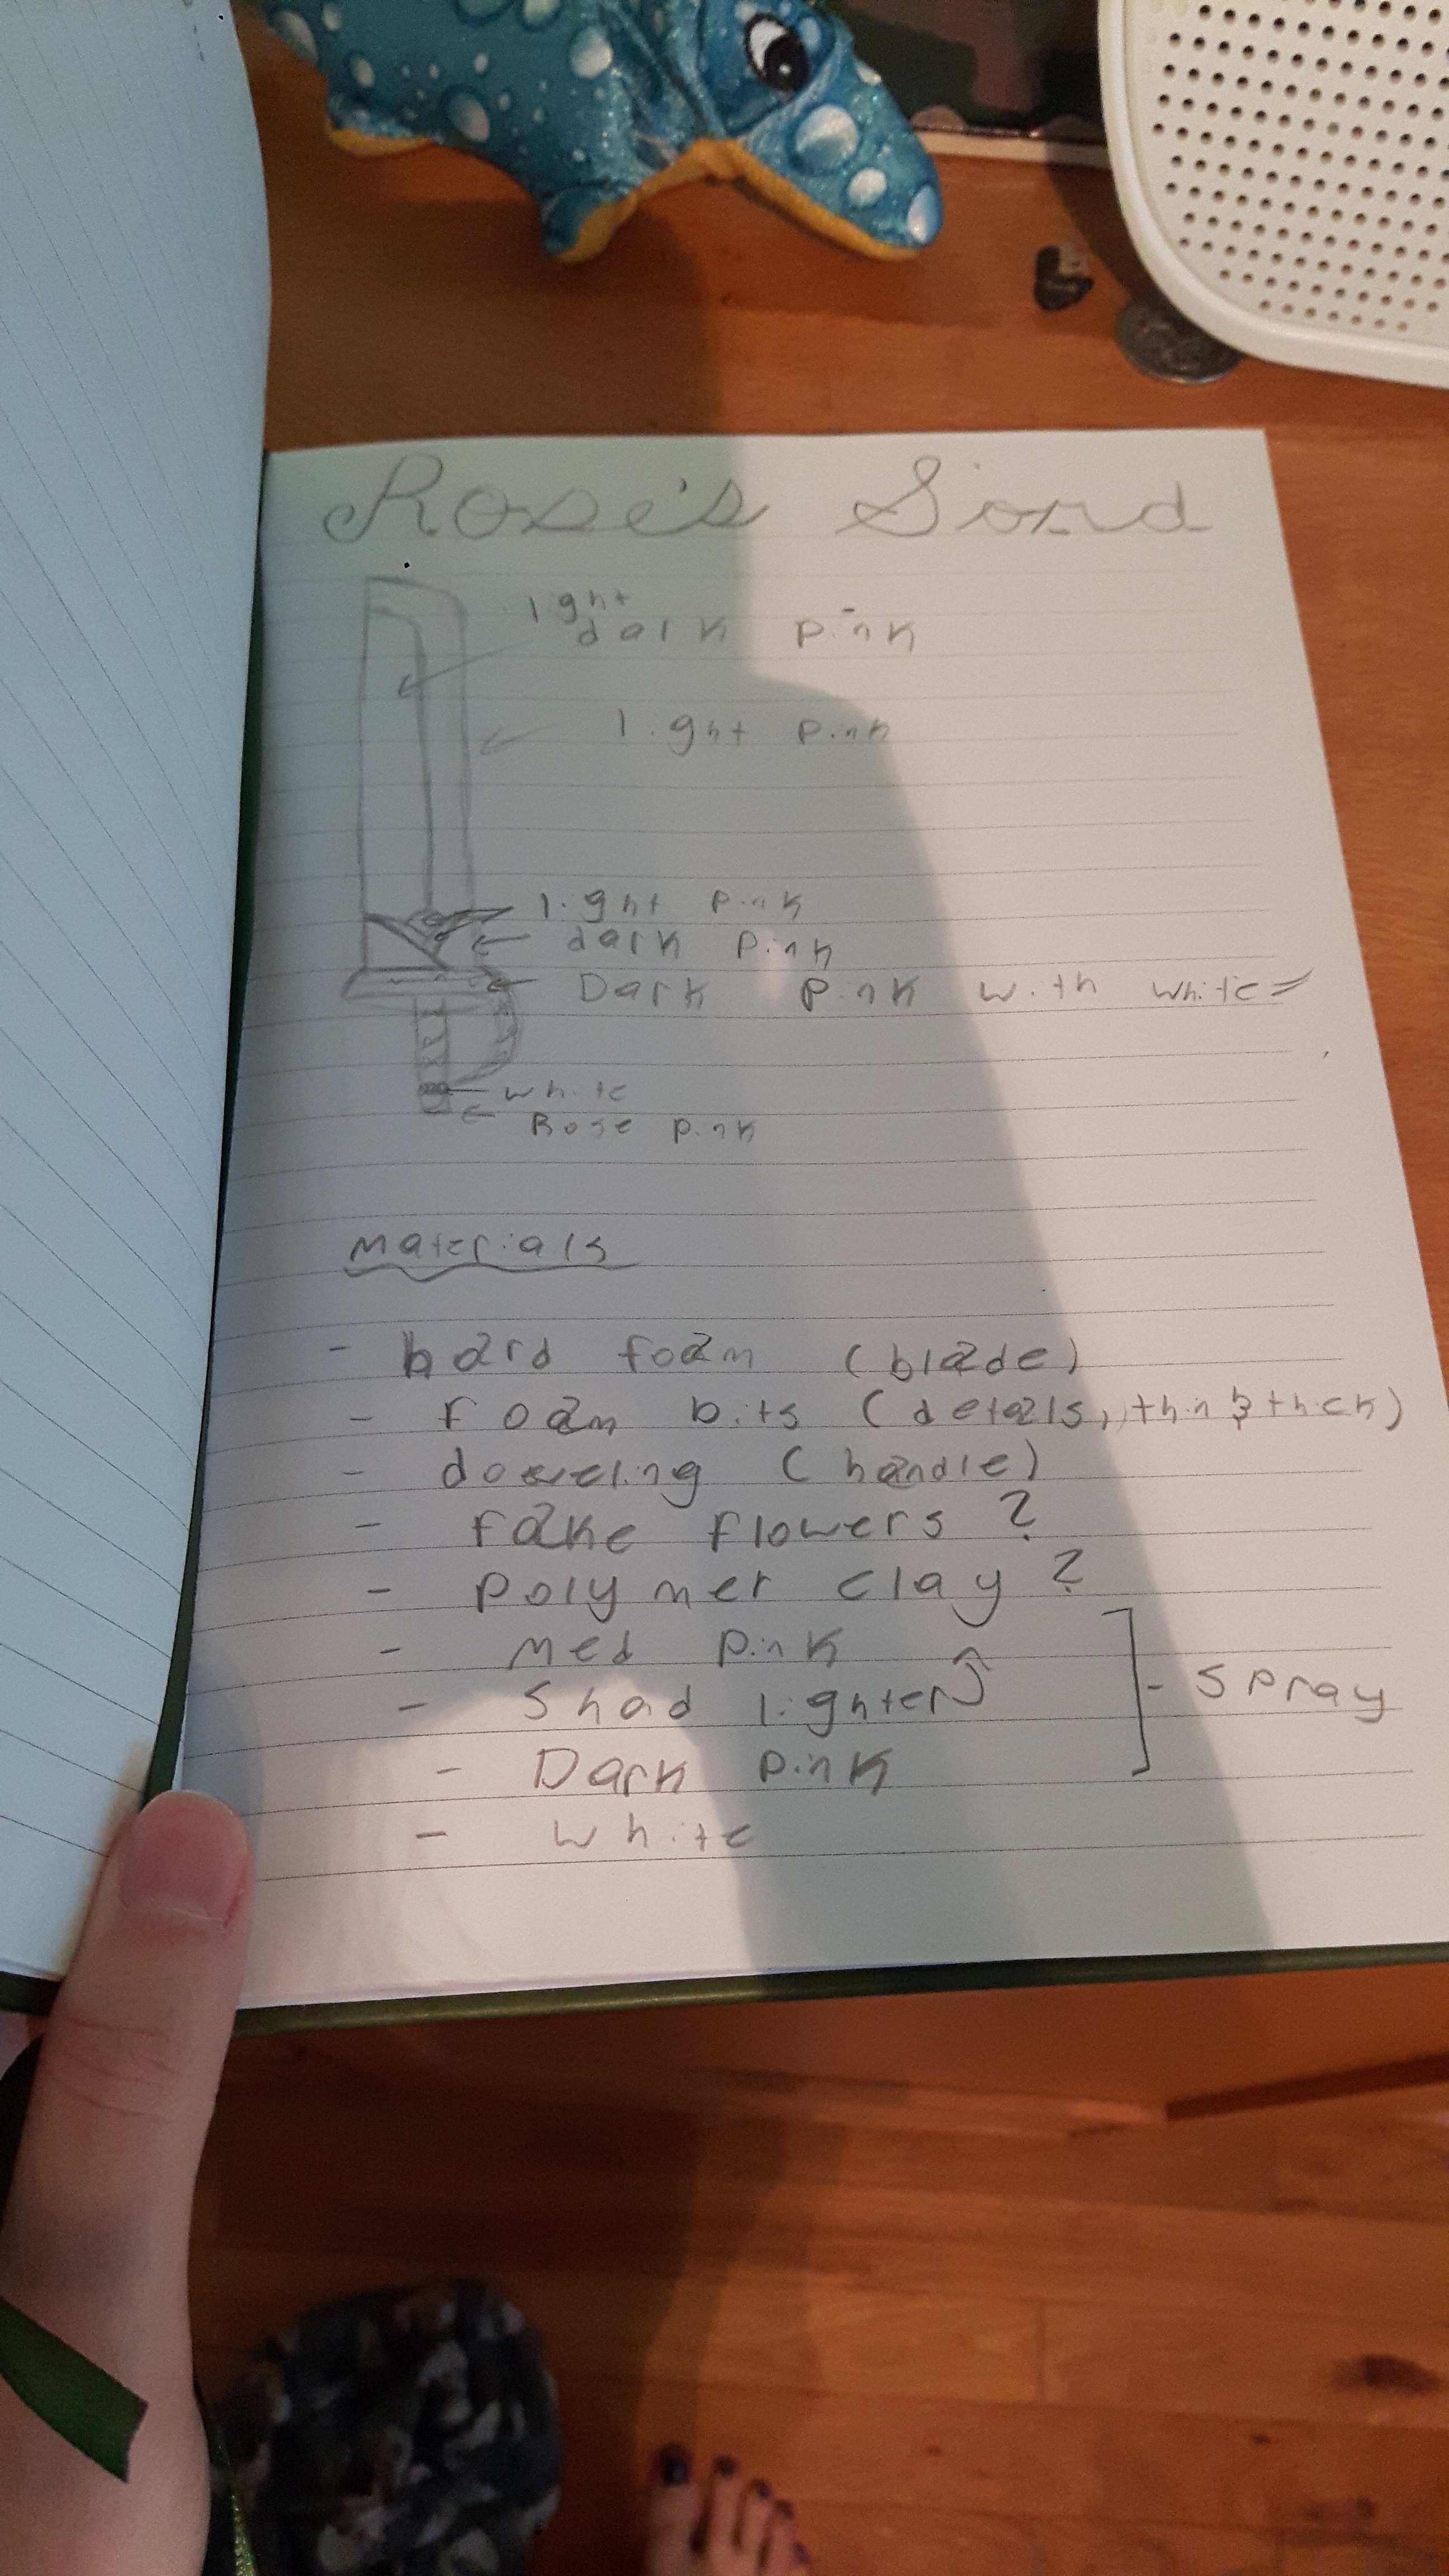 Rose's Sord
light
dark pink
light pink
light pink
dark pink
Dark pink with white
white
Rose pink
Materials
- hard foam (blade)
- foam bits (details, thin & thick)
- doweling (handle)
- fake flowers?
- polymer clay?
- Med pink
- Shad lighter
- Spray
- Dark pink
- white